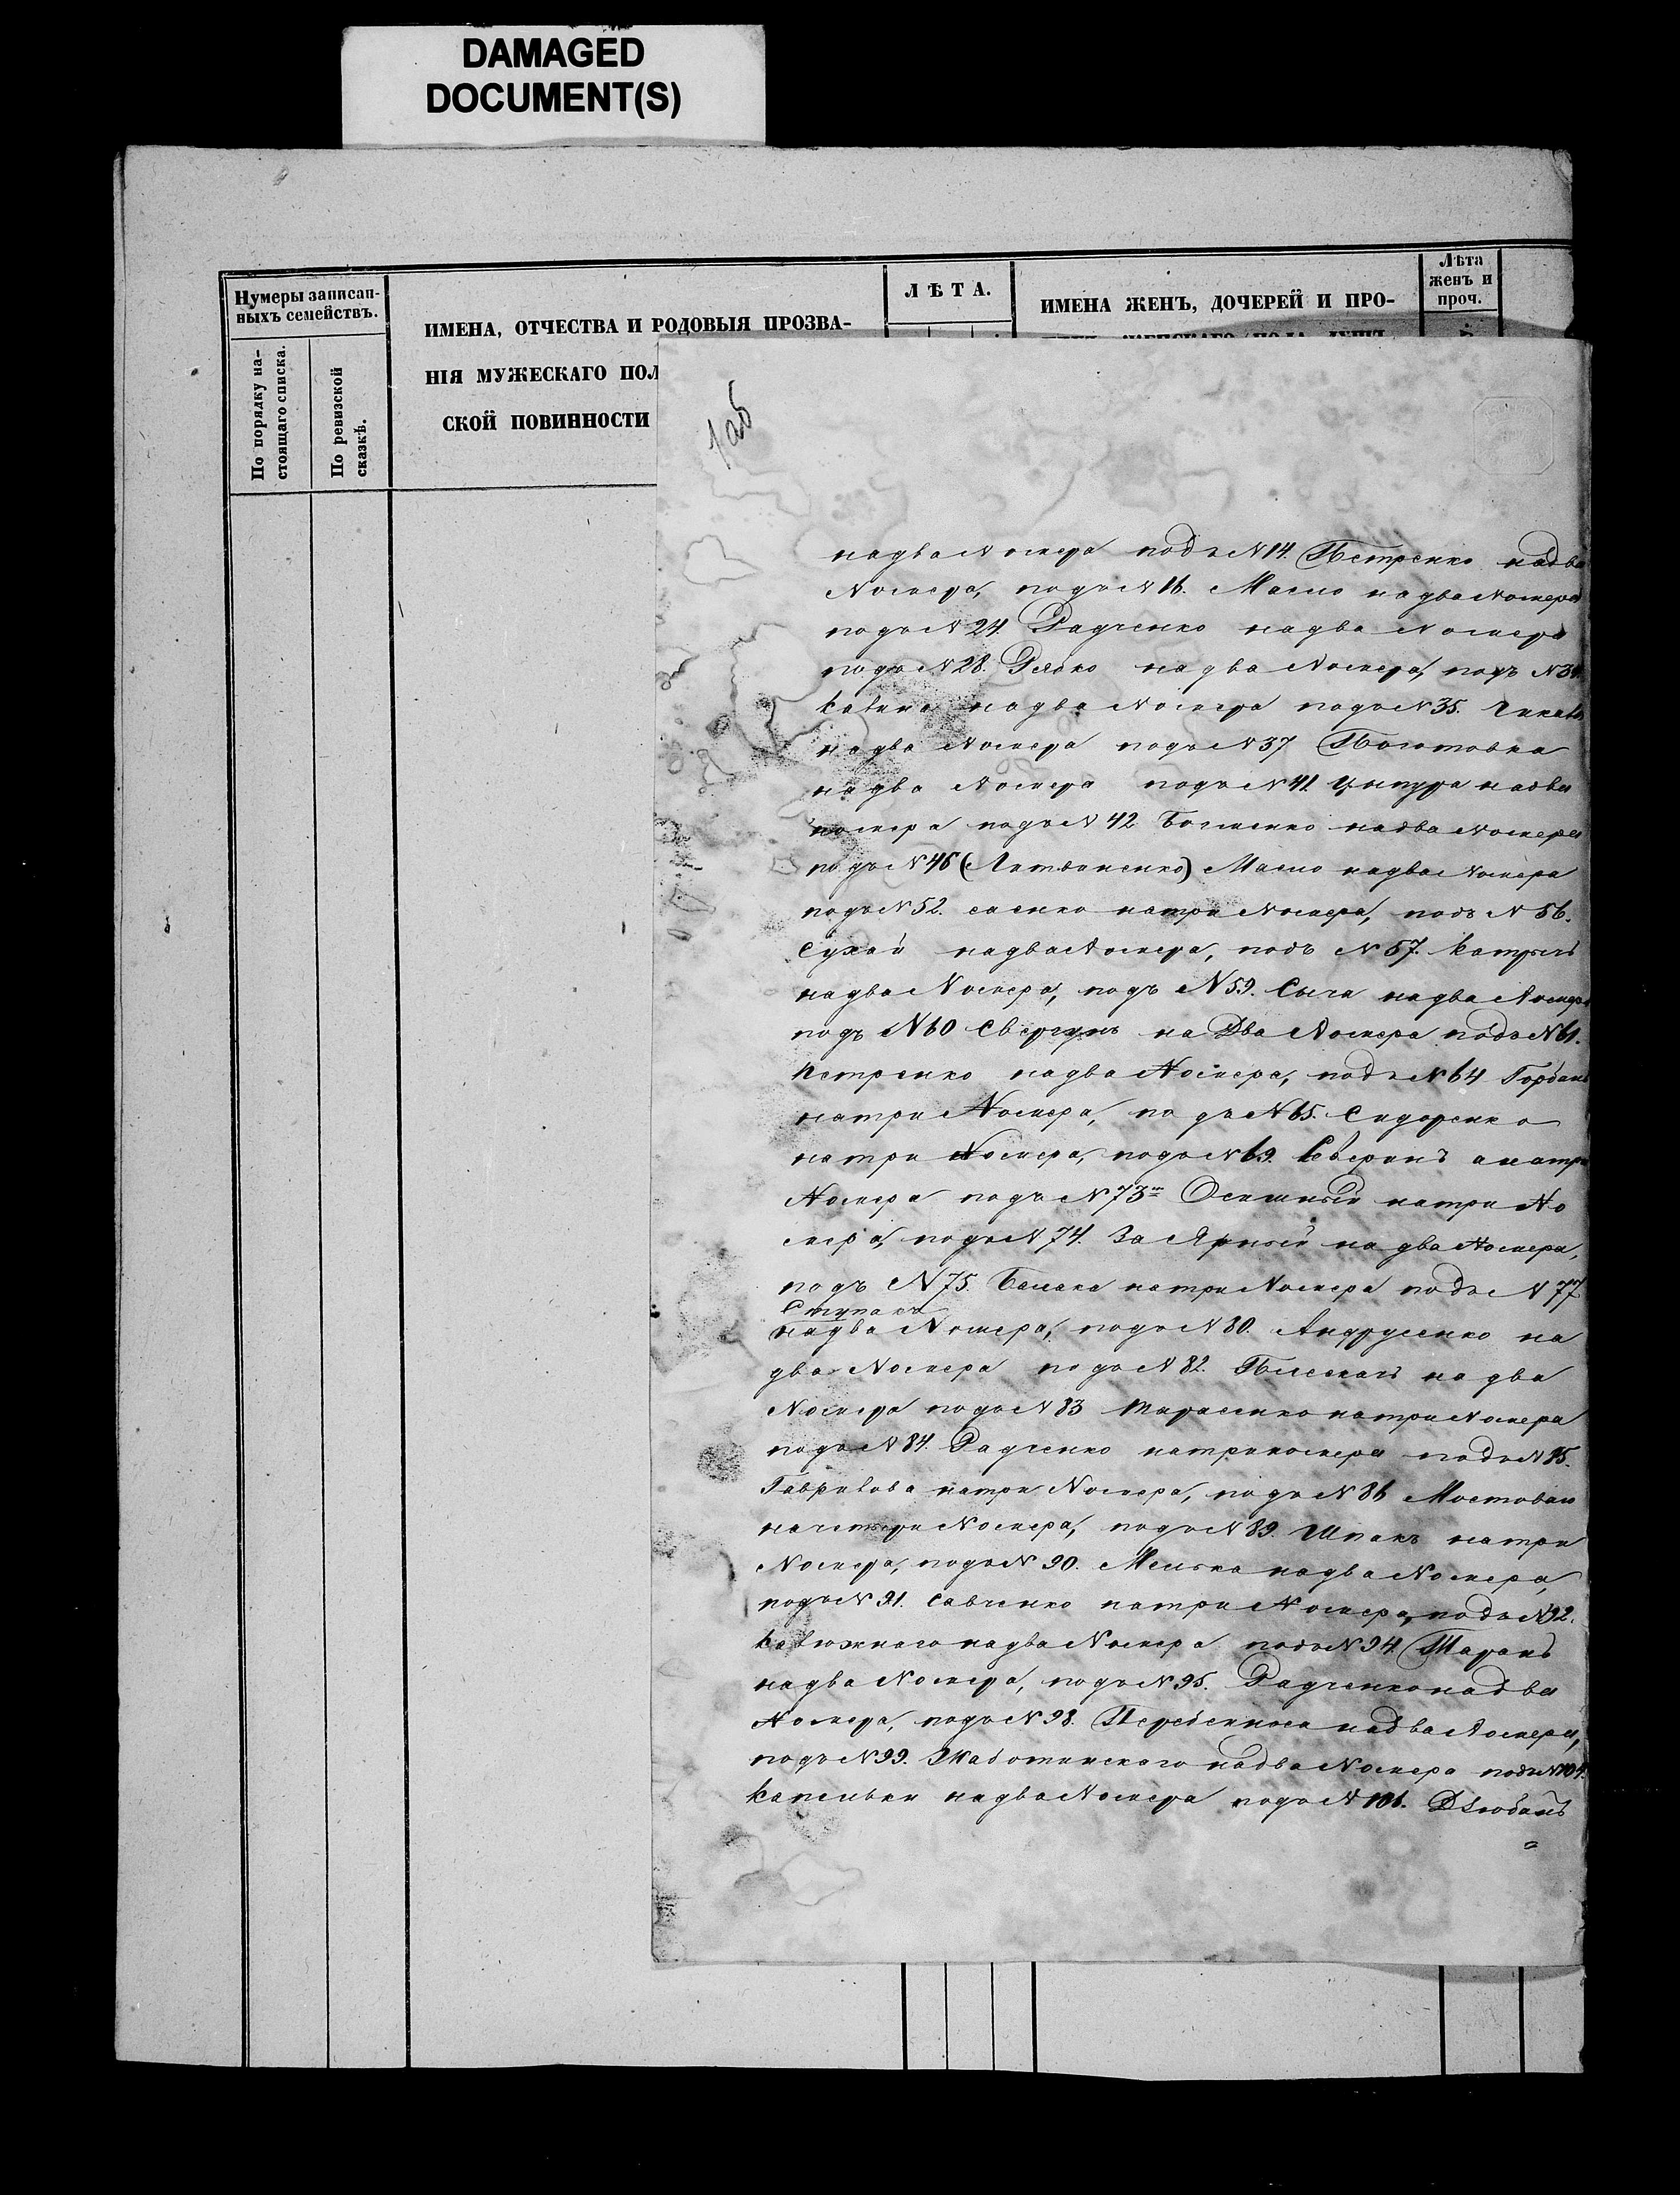 DAMAGED
DOCUMENT(S)
Нумеры записан-
ныхъ семействъ.
По порядку на-
стоящаго списка.
По ревизской
сказкѣ.
ИМЕНА, ОТЧЕСТВА И РОДОВЫЯ ПРОЗВА-
НІЯ МУЖЕСКАГО ПОЛ
СКОЙ ПОВИННОСТИ
Л Ѣ Т А.
ИМЕНА ЖЕНЪ, ДОЧЕРЕЙ И ПРО-
Лѣта
женъ и
проч.
1об
надва Номера подъ N14. Петренко надва
Номера, подъ N16. Масло надва Номера
подъ N24. Радченко надва Номера
подъ N28. Рябко надва Номера, подъ
надва Номера подъ N35.
надва Номера подъ N37
надва Номера подъ N41 Цыпура надва
номера подъ N42 Боженко надва Номера
подъ N46 (Литвиненко) Масло надва Номера
подъ N52. натри Номера, подъ N56.
Сухой надва Номера, подъ N57.
надва Номера, подъ N59. Сыча надва Номера
подъ N60 Свергунъ на Два Номера подъ N61.
Петренко надва Номера, подъ N64 Горбань
натри Номера, подъ N65. Сидоренко
натри Номера, подъ N69. Северинъ натри
Номера подъ N73й Осишный натри Но
мера, подъ N74. Заярный на два Номера,
подъ N75. натри Номера подъ N77
Ступакъ
надва Номера, подъ N80. Андрусенко на
два Номера подъ N82. на два
Номера подъ N83 Тарасенко натри Номера
подъ N84. Радченко натри номера подъ N85.
Гаврикова натри Номера, подъ N86 Мостоваго
начетыри Номера, подъ N89. Шпакъ натри
Номера, подъ N90. надва Номера,
подъ N91. Савченко натри Номера, подъ N92.
Калюжнаго надва Номера подъ N94. Таранъ
надва Номера, подъ N95. Радченко надва
Номера, подъ N98. Перебейноса надва Номера,
подъ N99. Жаботинскаго надва Номера подъ N104.
надва Номера подъ N106. Дзюбанъ
=